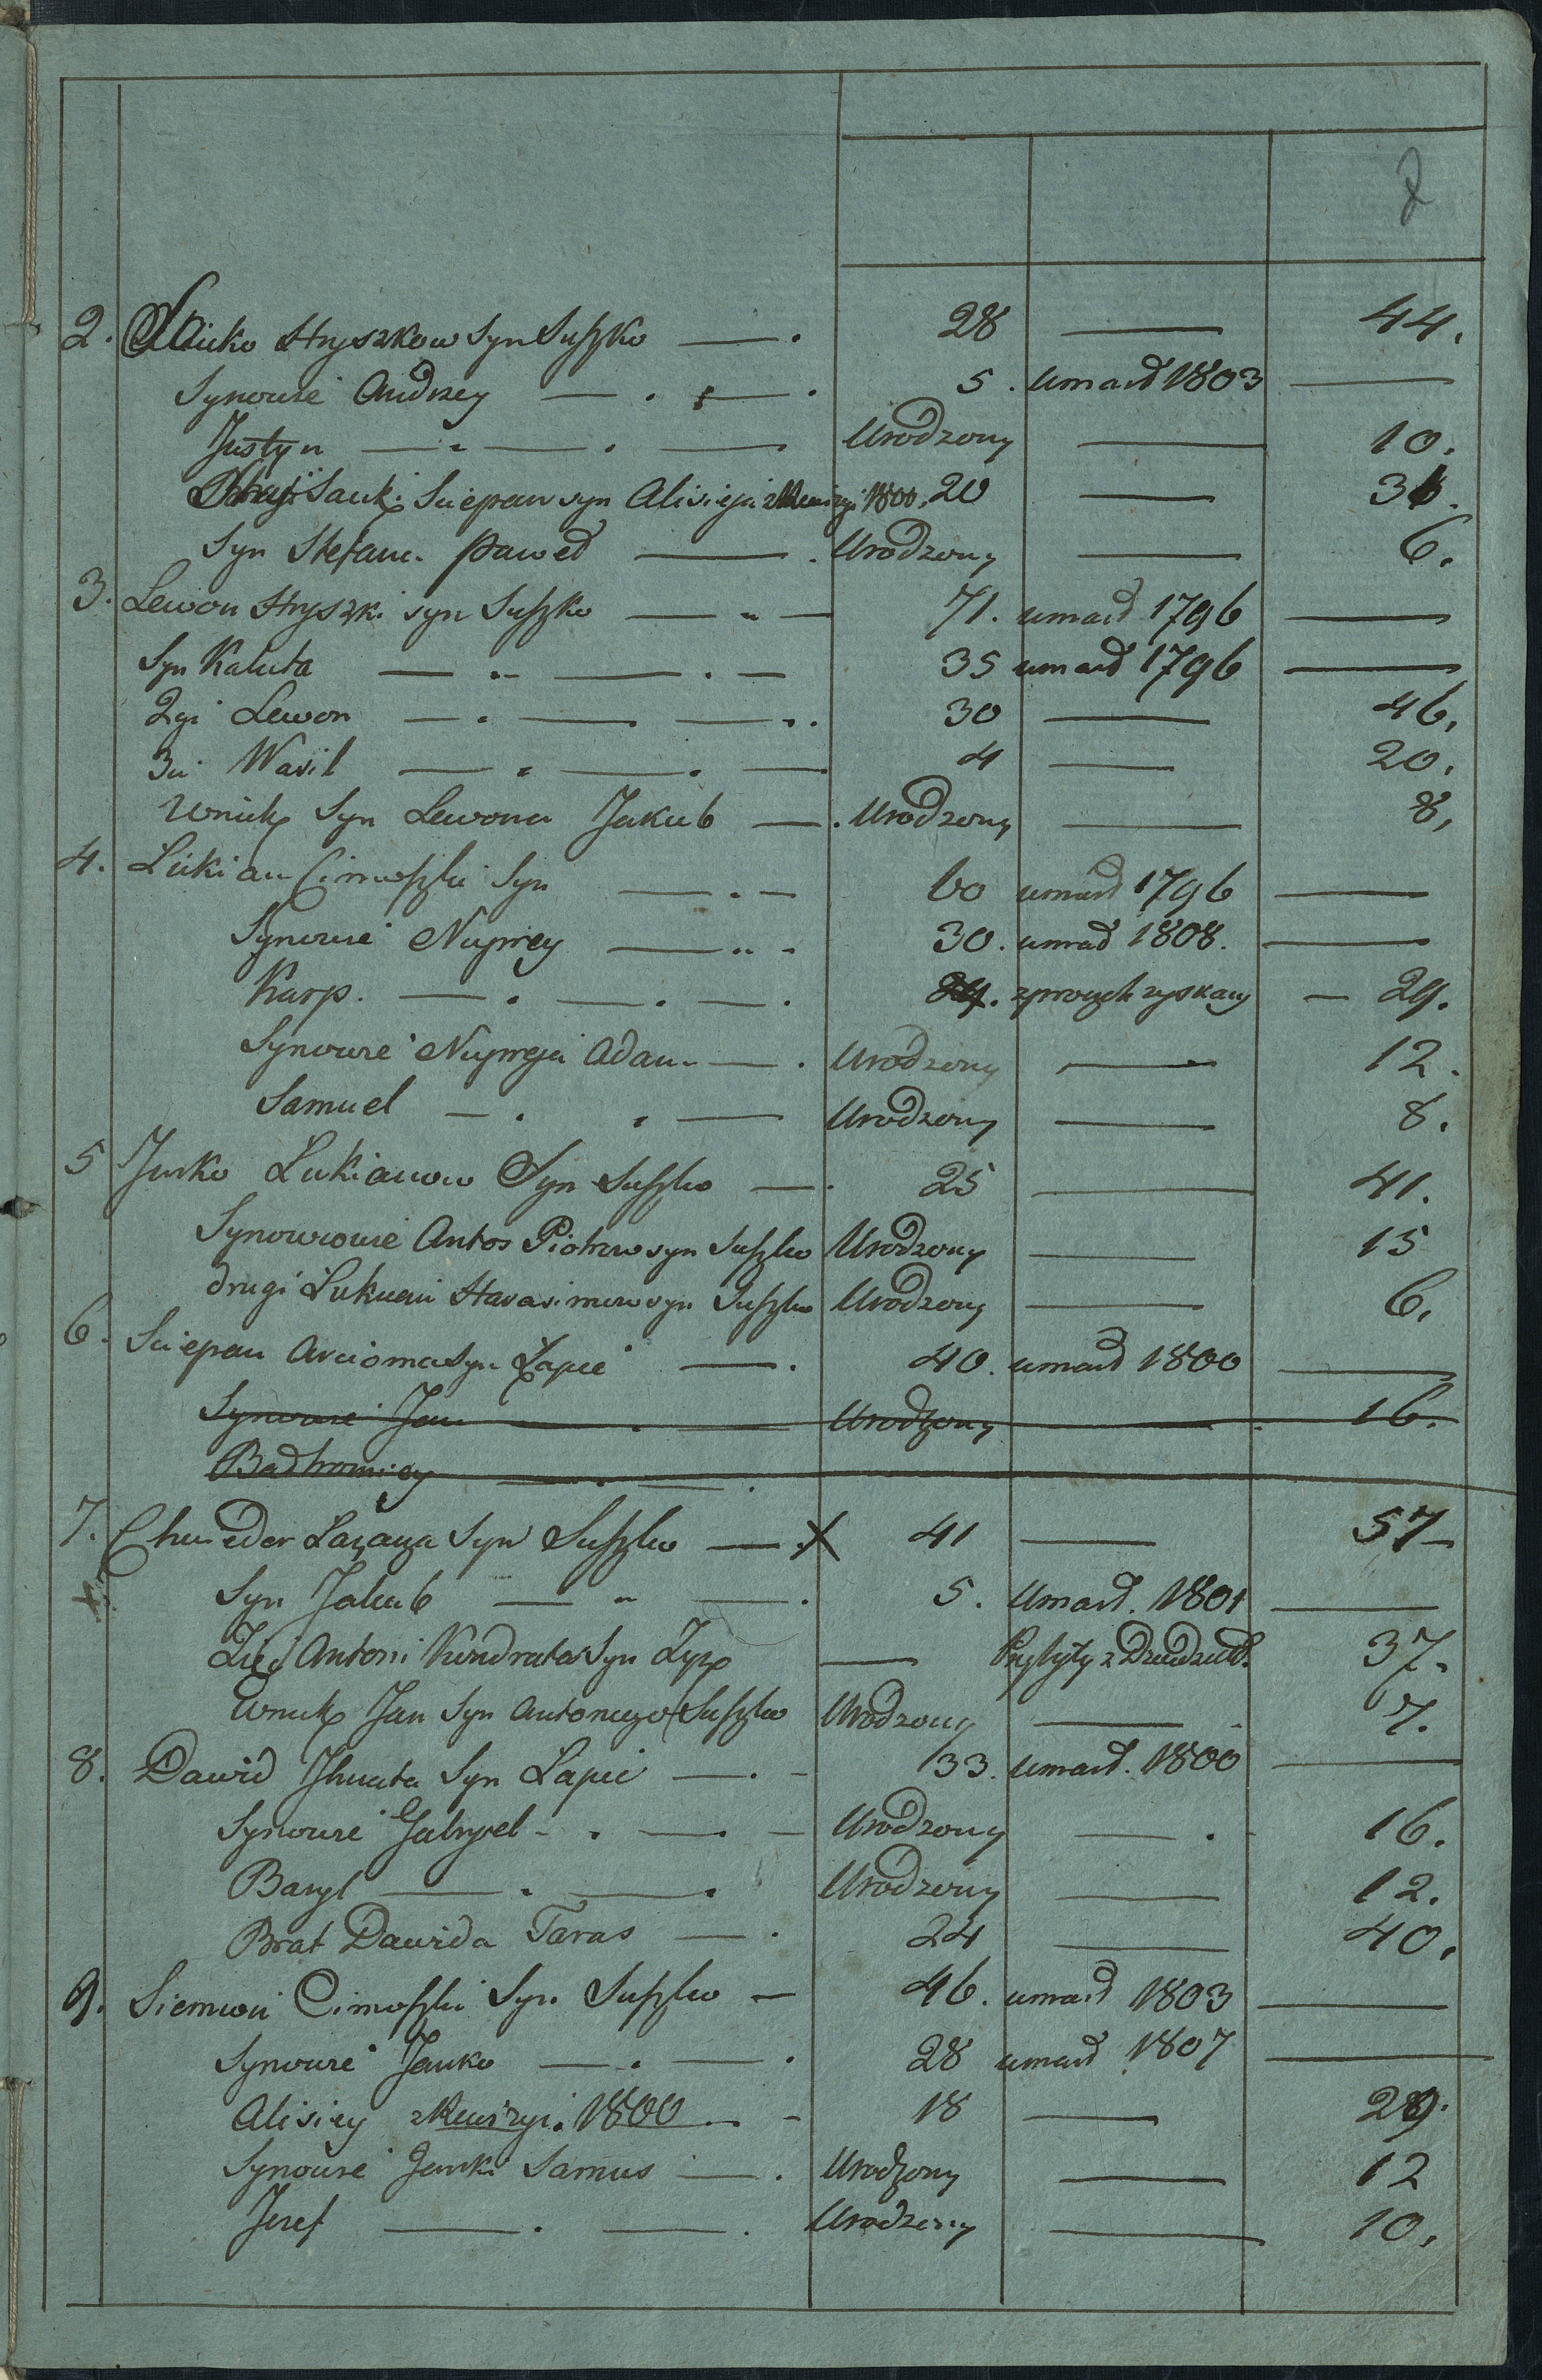 2
2. Sauko Hryszkow Syn Suszko 28 — 44.
Synowie Andrzey 5. umarł 1803 —
Justyn Urodzony — 10.
Sauki Sciepan syn Alisieja z Rewizyi 1800. 20 — 36.
Syn Stefana Paweł Urodzony — 6.
3. Lewon Hryszki syn Suszko 71. umarł 1796 —
Syn Kaluta 35 umarł 1796 —
2gi Lewon 30 — 46.
3ci Wasil 4 — 20.
Wnuk Syn Lewona Jakub Urodzony — 8,
4. Lukian Cimoszki Syn 60 umarł 1796 —
Synowie Nuprey 30. umarł 1808. —
Karp. 24. — 29.
Synowie Nupreja Adam Urodzony — 12.
Samuel Urodzony — 8.
5 Jurko Lukianow Syn Suszko 25 — 41.
Synowcowie Antos Piotrow syn Suszko Urodzony — 15
drugi Lukian Harasimow syn Suszko Urodzony — 6.
6. Sciepan Arcioma Syn Łapic 40. umarł 1800 —
Synowie Jan Urodzony — 16.
Bartłomiey
7. Chwieder Łazarza Syn Suszko X 41 — 57
X Syn Jakub 5. Umarł. 1801 —
Zięć Antoni Kondrata Syn — 37.
Wnuk Jan Syn Antoniego Suszko Urodzony — 7.
8. Dawid Ihnata Syn Łapic 33. umarł. 1800 —
Synowie Gabryel Urodzony — 16.
Bazyl Urodzony — 12.
Brat Dawida Taras 24 — 40.
9. Siemion Cimoszki Syn Suszko 46. umarł 1803 —
Synowie Janko 28 umarł 1807 —
Alisiey z Rewizyi 1800 18 — 29.
Synowie Janki Samus Urodzony — 12
Jozef Urodzony — 10.